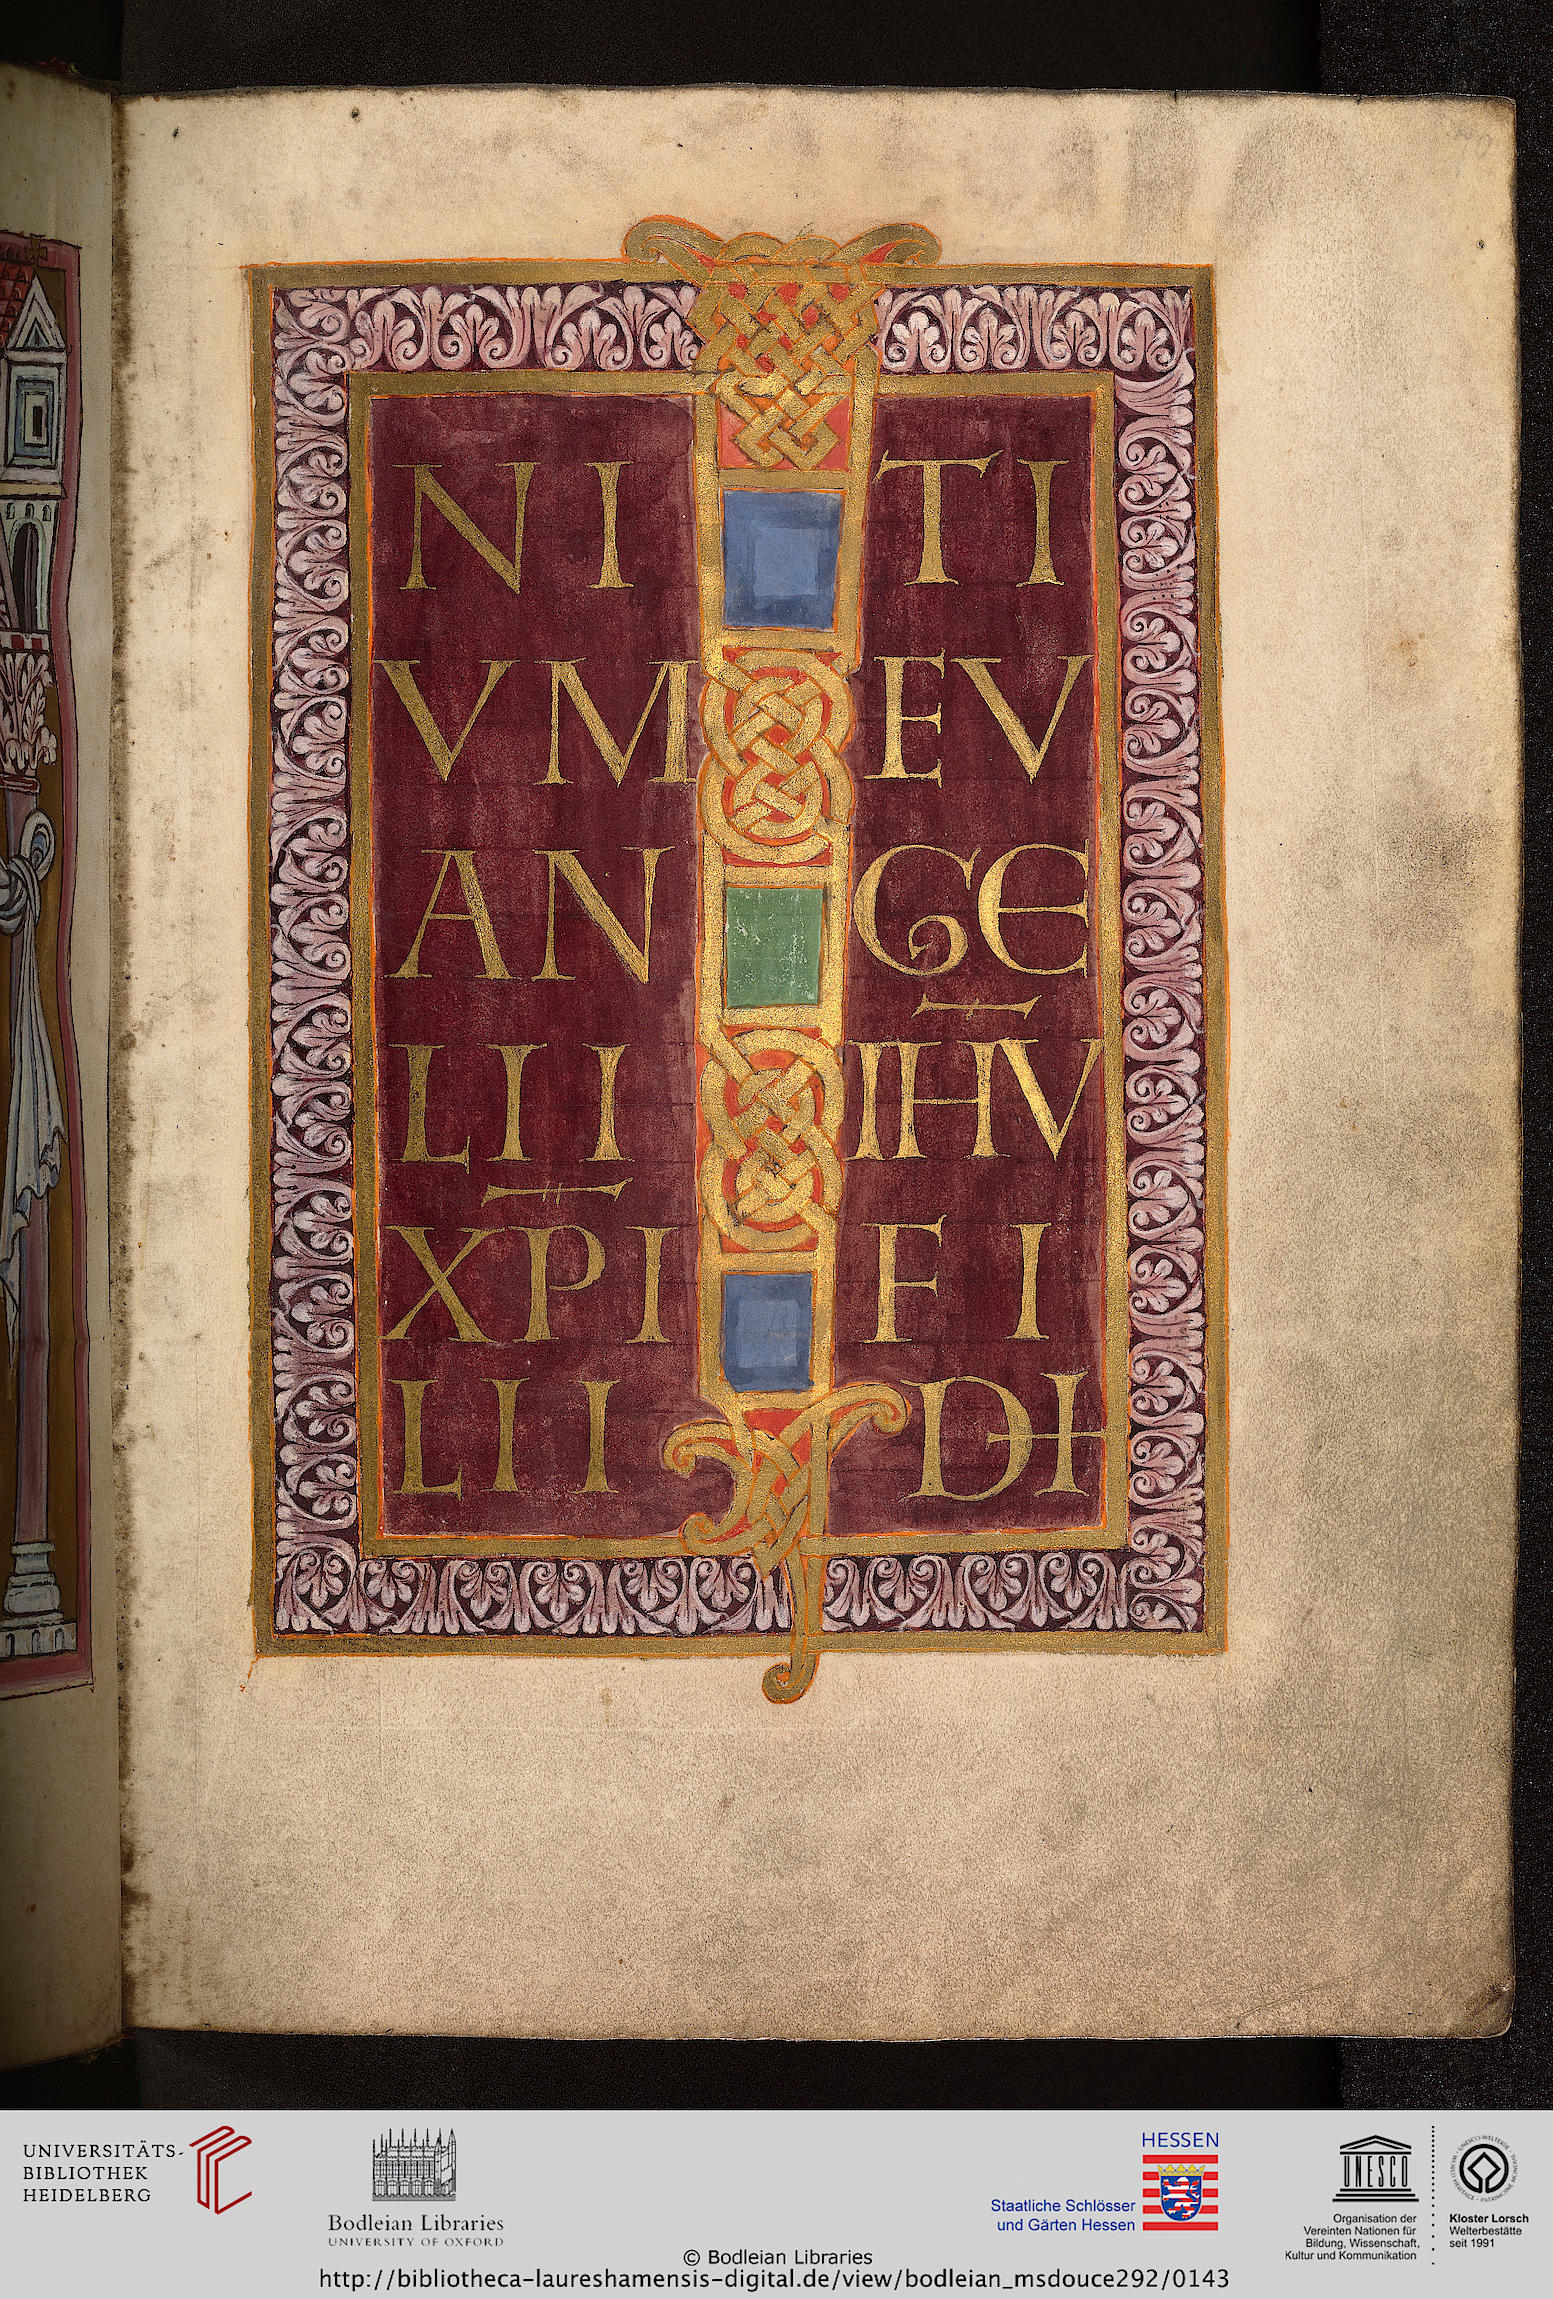 NI TI
VM EV
AN GE
LII IHV
XPI FI
LII DI
UNIVERSITÄTS-
BIBLIOTHEK
HEIDELBERG
Bodleian Libraries
UNIVERSITY OF OXFORD
HESSEN
Staatliche Schlösser
und Gärten Hessen
UNESCO
Organisation der
Vereinten Nationen für
Bildung, Wissenschaft,
Kultur und Kommunikation
Kloster Lorsch
Welterbestätte
seit 1991
© Bodleian Libraries
http://bibliotheca-laureshamensis-digital.de/view/bodleian_msdouce292/0143